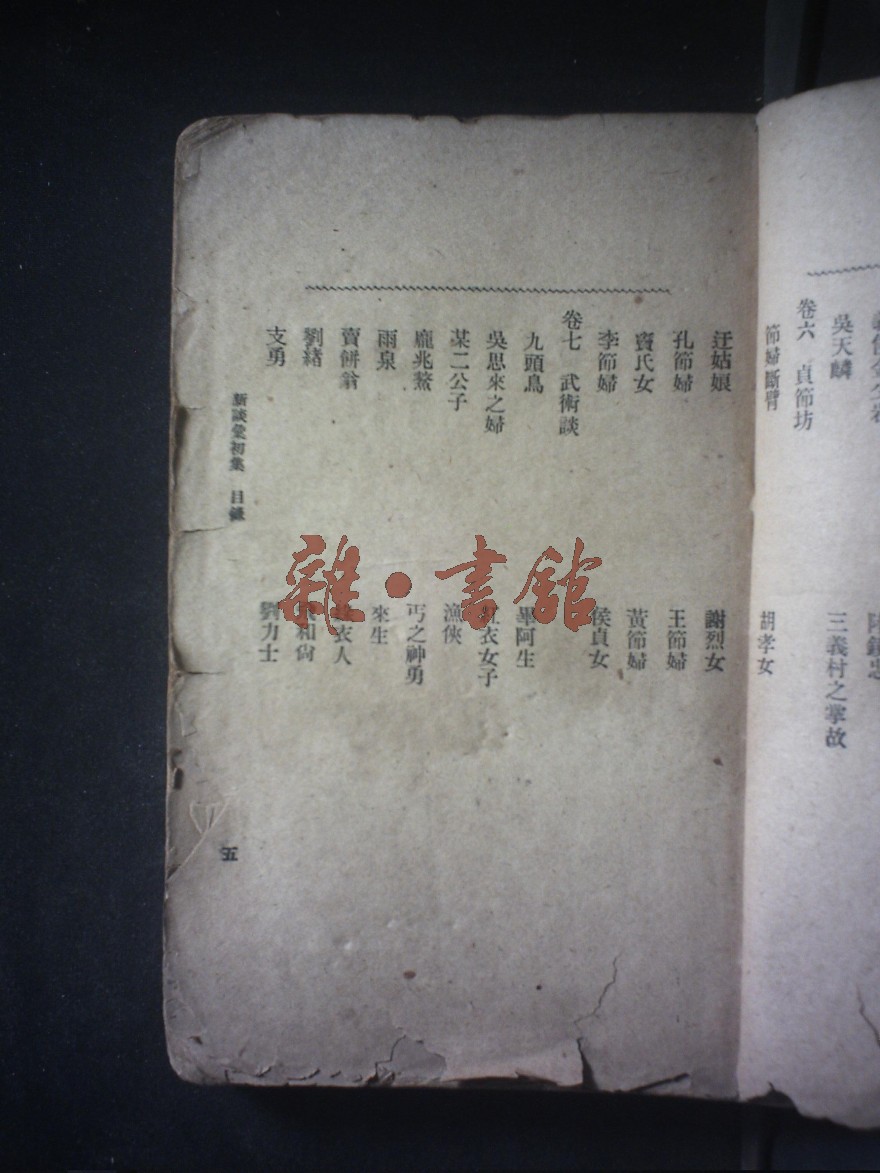 吳天麟
三義村之掌故
卷六 貞節坊
節婦斷臂
胡孝女
迂姑娘
謝烈女
孔節婦
王節婦
竇氏女
黃節婦
李節婦
侯貞女
卷七 武術談
九頭鳥
畢阿生
吳思來之婦
紅衣女子
某二公子
漁俠
龐兆鰲
丐之神勇
雨泉
來生
賣餅翁
衣人
劉緒
和尙
支勇
劉力士
新談彙初集 目錄
五
雜·書館